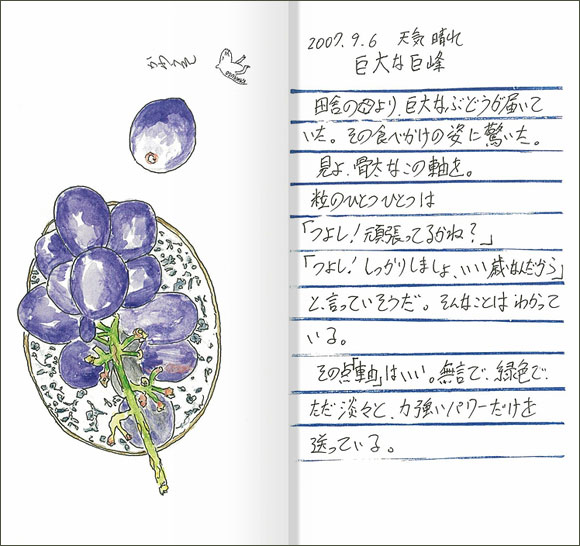 2007.9.6 天気 晴れ
巨大な巨峰
田舎の母より、巨大なぶどうが届いて
いた。その食べかけの姿に驚いた。
見よ、骨太なこの軸を。
粒のひとつひとつは
「つよし！頑張ってるかね？」
「つよし！しっかりしましょ、いい歳なんだから」
と、言っていそうだ。そんなことはわかって
いる。
その点「軸」はいい。無言で、緑色で、
ただ淡々と、力強いパワーだけを
送っている。